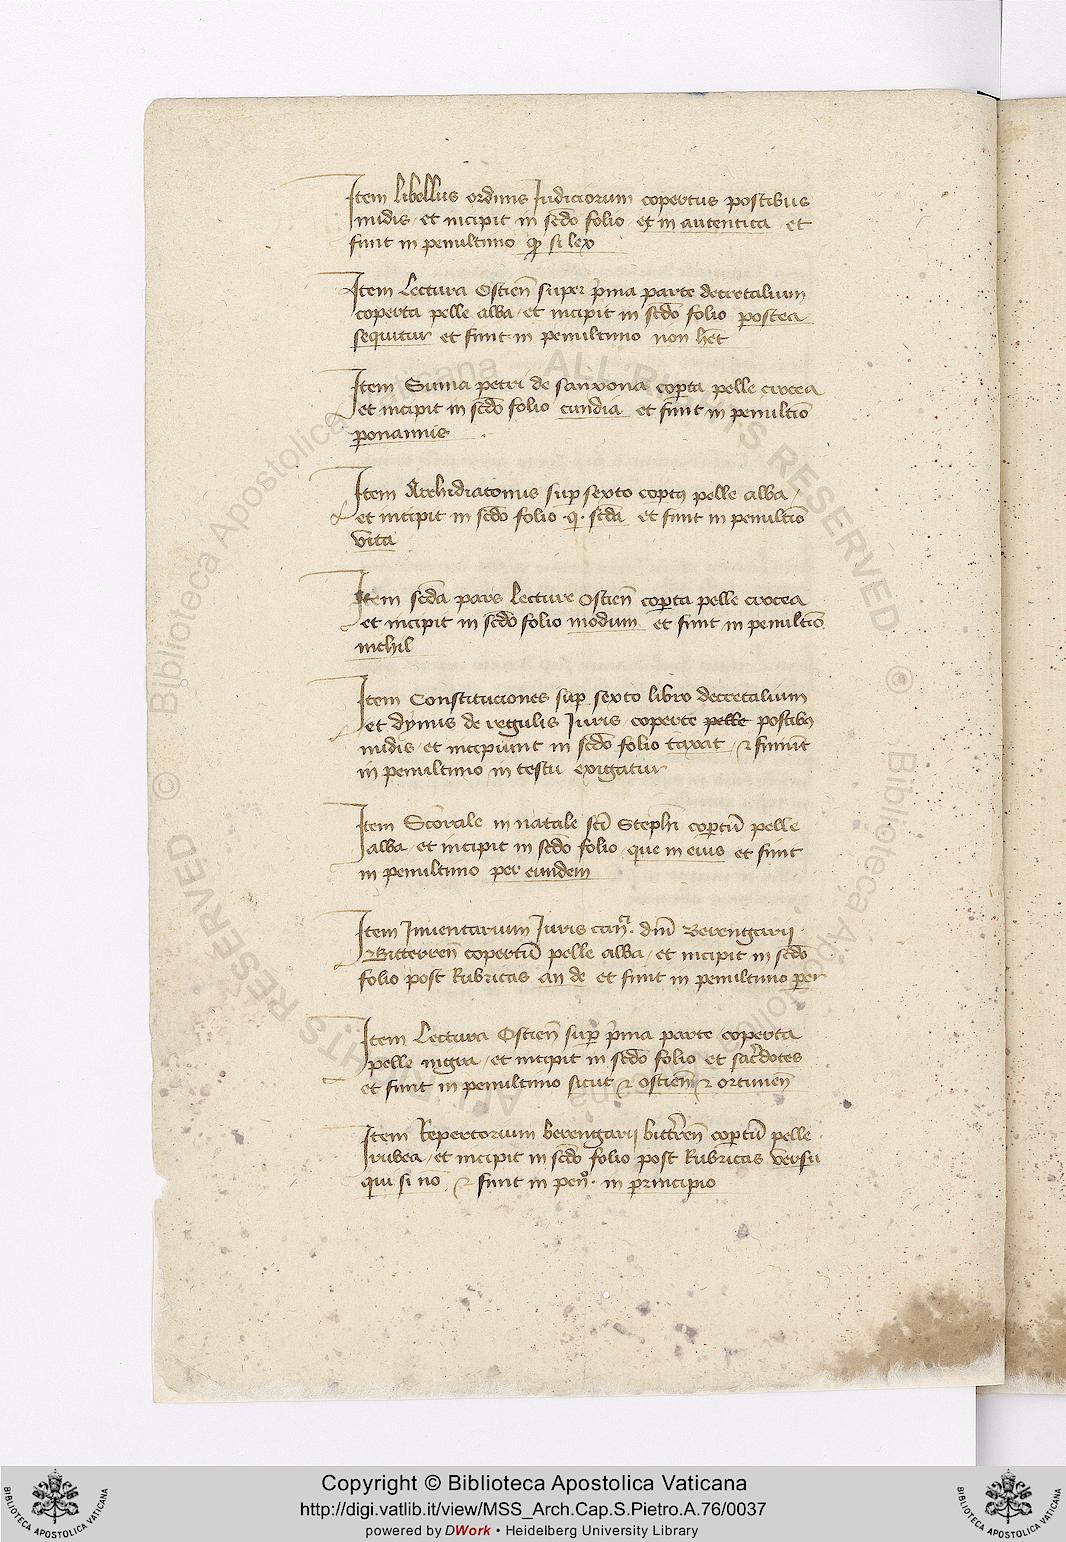 Item libellus ordinis Judiciorum copertus postibus
nudis et incipit in scdo folio ex in autentica et
finit in penultimo si lex
Item Lectura Ostien super prima parte decretalium
coperta pelle alba et incipit in scdo folio postea
sequitur et finit in penultimo non het
Item Suma petri de sanxona copta pelle crocea
et incipit in scdo folio cundia et finit in penultio
ponannis
Item Archidiaconus sup sexto copt9 pelle alba
et incipit in scdo folio .q. scda et finit in penultio
vita
Item scda pars lecture Ostien copta pelle crocea
et incipit in scdo folio modum et finit in penultio
nichil
Item Constituciones sup sexto libro decretalium
et dymus de regulis Juris coperte pelle postib9
nudis et incipiunt in scdo folio taxat et finiut
in penultimo in testu exigatur
Item Scorale in natale sci Stephi coptu pelle
alba et incipit in scdo folio que in eius et finit
in penultimo per eundem
Item Inventarium Juris can. dni Berengarii
Bitterren copertu pelle alba et incipit in scdo
folio post Rubricas an de et finit in penultimo per
Item Lectura Ostien sup pma parte coperta
pelle nigra et incipit in scdo folio et sacdotes
et finit in penultimo sicut et ostien et
Item Repertorium berengarii bitren coptu pelle
rubea et incipit in scdo folio post Rubricas versu
qui si no et finit in peno. in principio
© Biblioteca Apostolica Vaticana ALL RIGHTS RESERVED © Biblioteca Apostolica Vaticana ALL RIGHTS RESERVED
Copyright © Biblioteca Apostolica Vaticana
http://digi.vatlib.it/view/MSS_Arch.Cap.S.Pietro.A.76/0037
powered by DWork • Heidelberg University Library
BIBLIOTECA APOSTOLICA VATICANA
BIBLIOTECA APOSTOLICA VATICANA